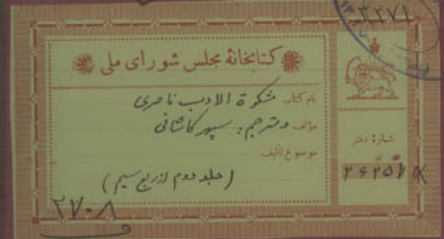 ۳۲۷۱
کتابخانهٔ مجلس شورای ملی
نام کتاب مشکوة الادب ناصری
مؤلف و مترجم: سپهر کاشانی
موضوع تألیف
(جلد دوم از ربع سیم)
شمارهٔ دفتر
۲۷۰۸
ف